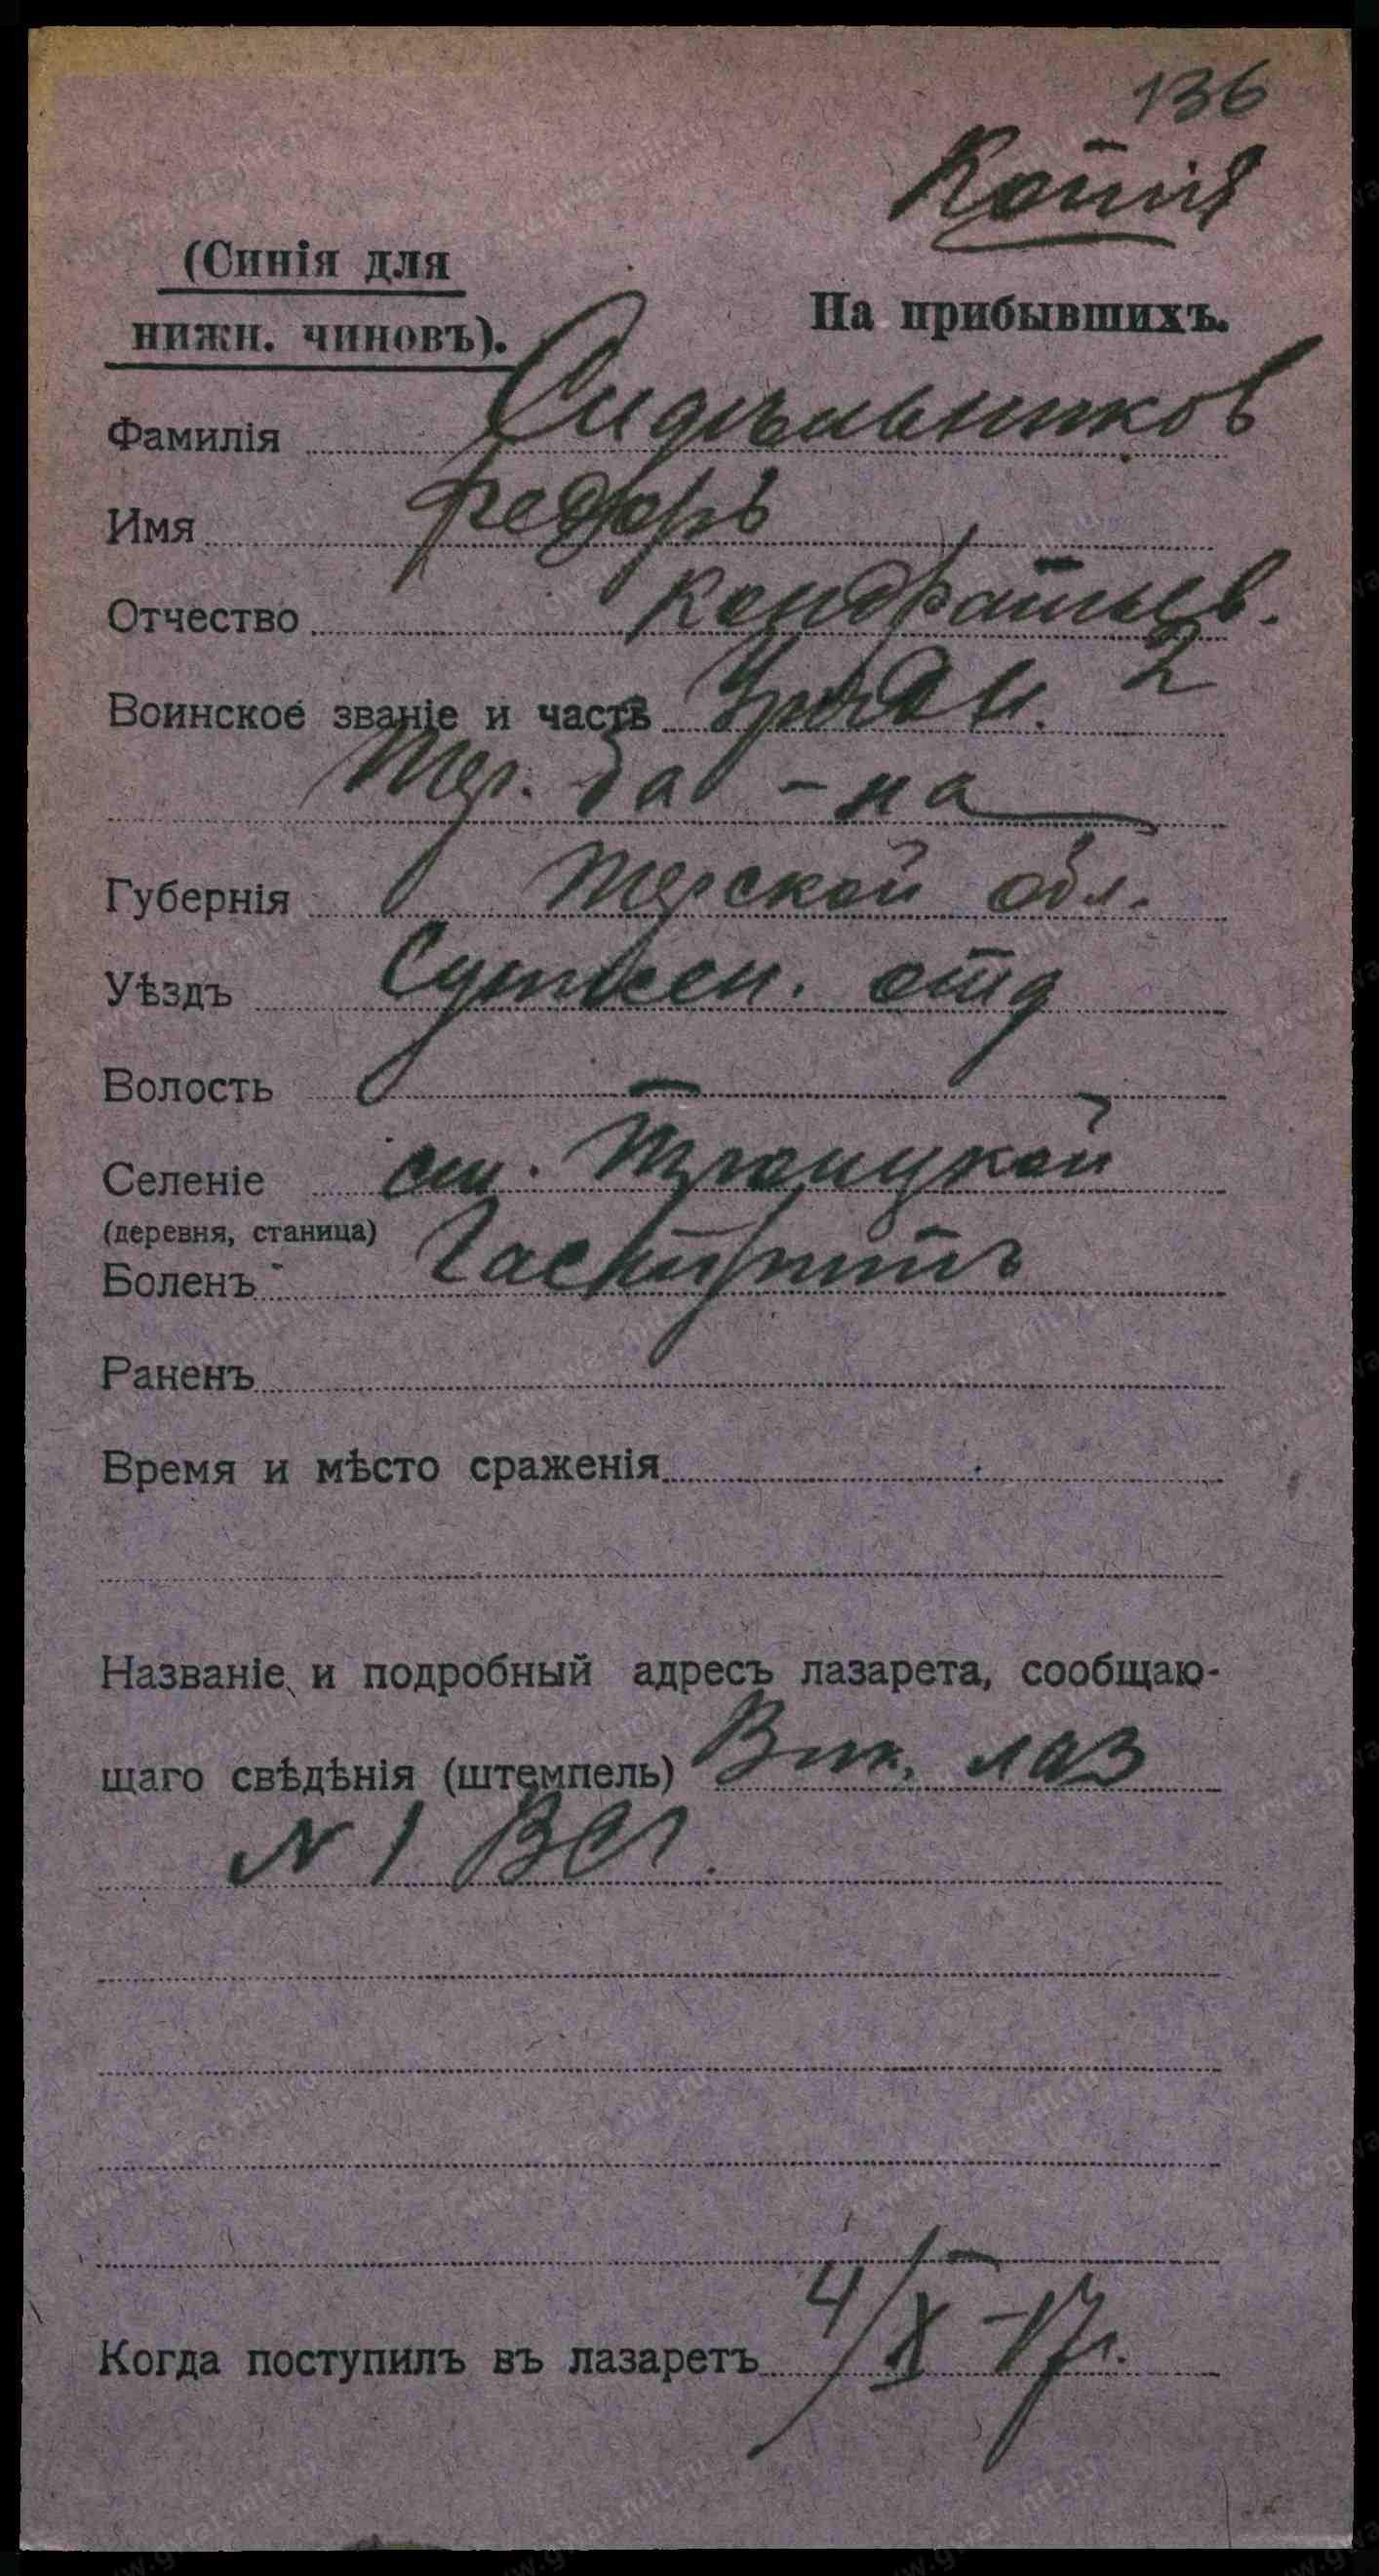 136
Копия
(Синія для
нижн. чиновъ).
На прибывшихъ.
Фамилія Сидѣльников
Имя Федоръ
Отчество Кондратьев.
Воинское званіе и часть Уряд. 2
Тер. ба-на
Губернія Терской обл.
Уѣздъ Сунжен. отд
Волость
Селеніе ст. Троицкой
(деревня, станица)
Боленъ Гастритъ
Раненъ
Время и мѣсто сраженія
Названіе и подробный адресъ лазарета, сообщаю-
щаго свѣдѣнія (штемпель) лаз
N 1
Когда поступилъ въ лазаретъ 4/X-17г.